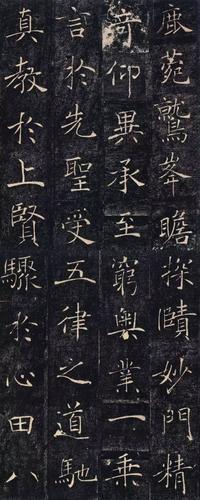 鹿菀鷲峯瞻探賾妙門精
奇仰異承至窮奧業一乘
言於先聖受五律之道馳
真教於上賢驟於心田八